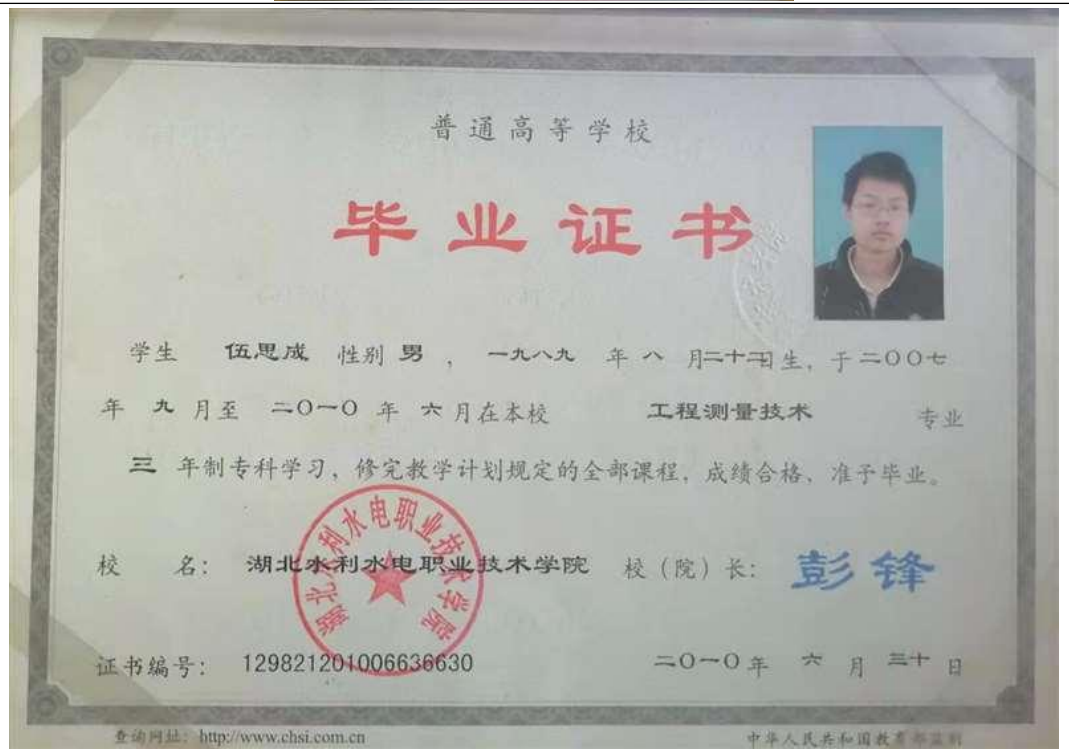 普通高等学校
毕业证书
学生 伍思成 性别 男 , 一九八九 年 八 月二十二日生, 于二〇〇七
年 九 月至 二〇一〇 年 六 月在本校 工程测量技术 专业
三 年制专科学习, 修完教学计划规定的全部课程, 成绩合格、准予毕业。
校 名: 湖北水利水电职业技术学院 校(院)长: 彭锋
湖北水利水电职业技术学院
证书编号: 129821201006636630 二〇一〇年 六 月 三十 日
查询网址: http://www.chsi.com.cn 中华人民共和国教育部监制